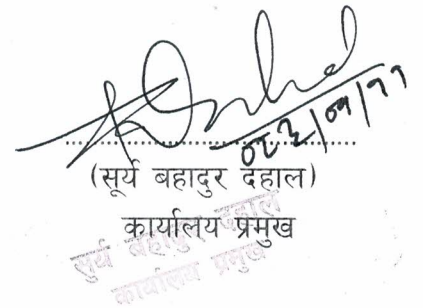 ०८२/०९/११
(सूर्य बहादुर दहाल)
कार्यालय प्रमुख
सूर्य बहादुर दहाल
कार्यालय प्रमुख